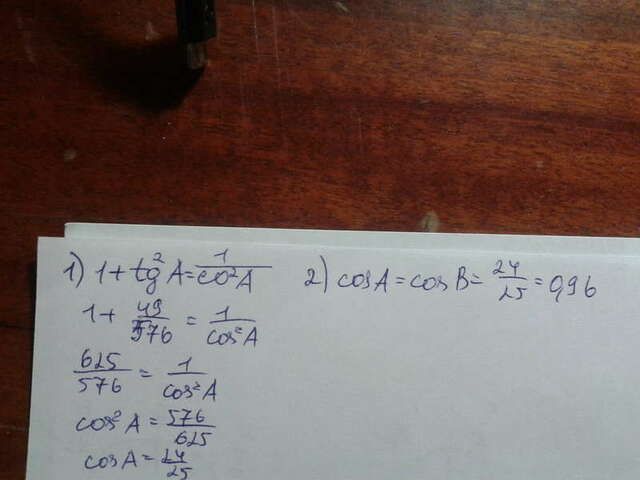 1) 1+tg²A=1/co²A
1+49/576=1/cos²A
625/576=1/cos²A
cos²A=576/625
cosA=24/25
2) cosA=cosB=24/25=0,96